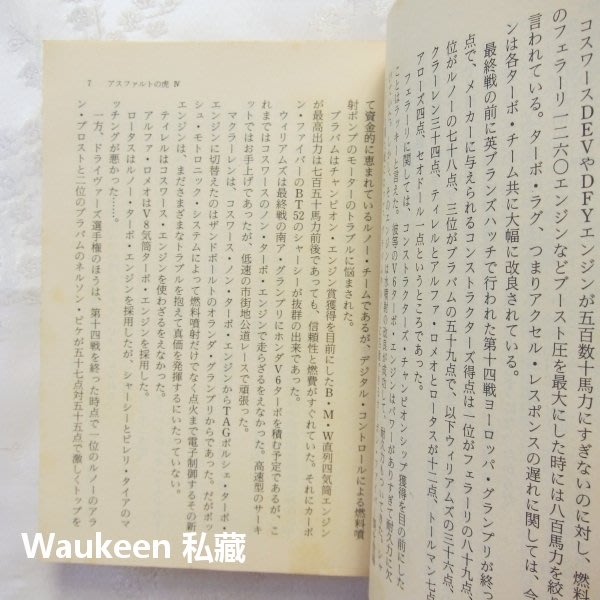 コスワースDEVやDFYエンジンが五百数十馬力にすぎないのに対し、燃料
のフェラーリ一二六〇エンジンなどブースト圧を最大にした時には八百馬力を絞り
言われている。ターボ・ラグ、つまりアクセル・レスポンスの遅れに関しては、今
ンは各ターボ・チーム共に大幅に改良されている。
最終戦の前に英ブランズハッチで行われた第十四戦ヨーロッパ・グランプリが終っ
点で、メーカーに与えられるコンストラクターズ得点は一位がフェラーリの八十九点、
位がルノーの七十八点、三位がブラバムの五十九点で、以下ウィリアムズの三十六点、
クラーレン三十四点、ティレルとアルファ・ロメオとロータスが十二点、トールマン七点
アローズ四点、セオドール一点というところであった。
フェラーリに関しては、コンストラクターズ・チャンピオンシップ獲得を目の前にした
ことはラッキーと言えた。彼等のV6ターボ・エンジンは、パワーがありすぎて耐久力に欠
7 アスファルトの虎 Ⅳ
て資金的に恵まれているルノー・チームであるが、デジタル・コントロールによる燃料噴
射ポンプのモーターのトラブルに悩まされた。
ブラバムはチャンピオン・エンジン賞獲得を目前にしたB・M・W直列四気筒エンジン
が最高出力は七百五十馬力前後であっても、信頼性と燃費がすぐれていた。それにカーボ
ン・ファイバーのBT52のシャーシーが抜群の出来であった。
ウィリアムズは最終戦の南ア・グランプリにホンダV6ターボを積む予定であるが、こ
れまではコスワースのノン・ターボ・エンジンで走らざるをえなかった。高速型のサーキ
ットではお手上げであったが、低速の市街地公道レースで頑張った。
マクラーレンは、コスワース・ノン・ターボ・エンジンからTAGポルシェ・ターボ・
エンジンに切替えたのはザンドボールトのオランダ・グランプリからであった。だがボッ
シュ・モトロニック・システムによって燃料噴射だけでなく点火まで電子制御するその新
エンジンは、まださまざまなトラブルを抱えて真価を発揮するにいたっていない。
ティレルはコスワース・エンジンを使わざるをえなかった。
アルファ・ロメオはV8気筒ターボ・エンジンを採用した。
ロータスはルノー・ターボ・エンジンを採用したが、シャーシーとピレリ・タイアのマ
ッチングが悪かった……。
一方、ドライヴァーズ選手権のほうは、第十四戦を終った時点で一位のルノーのアラ
ン・プロストと二位のブラバムのネルソン・ピケが五十七点対五十五点で激しくトップを
Waukeen 私藏